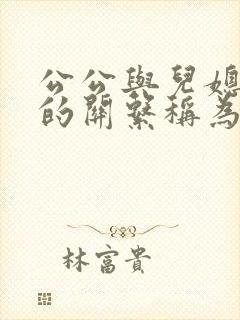 公公與兒媳
的關繫稱為
林富貴